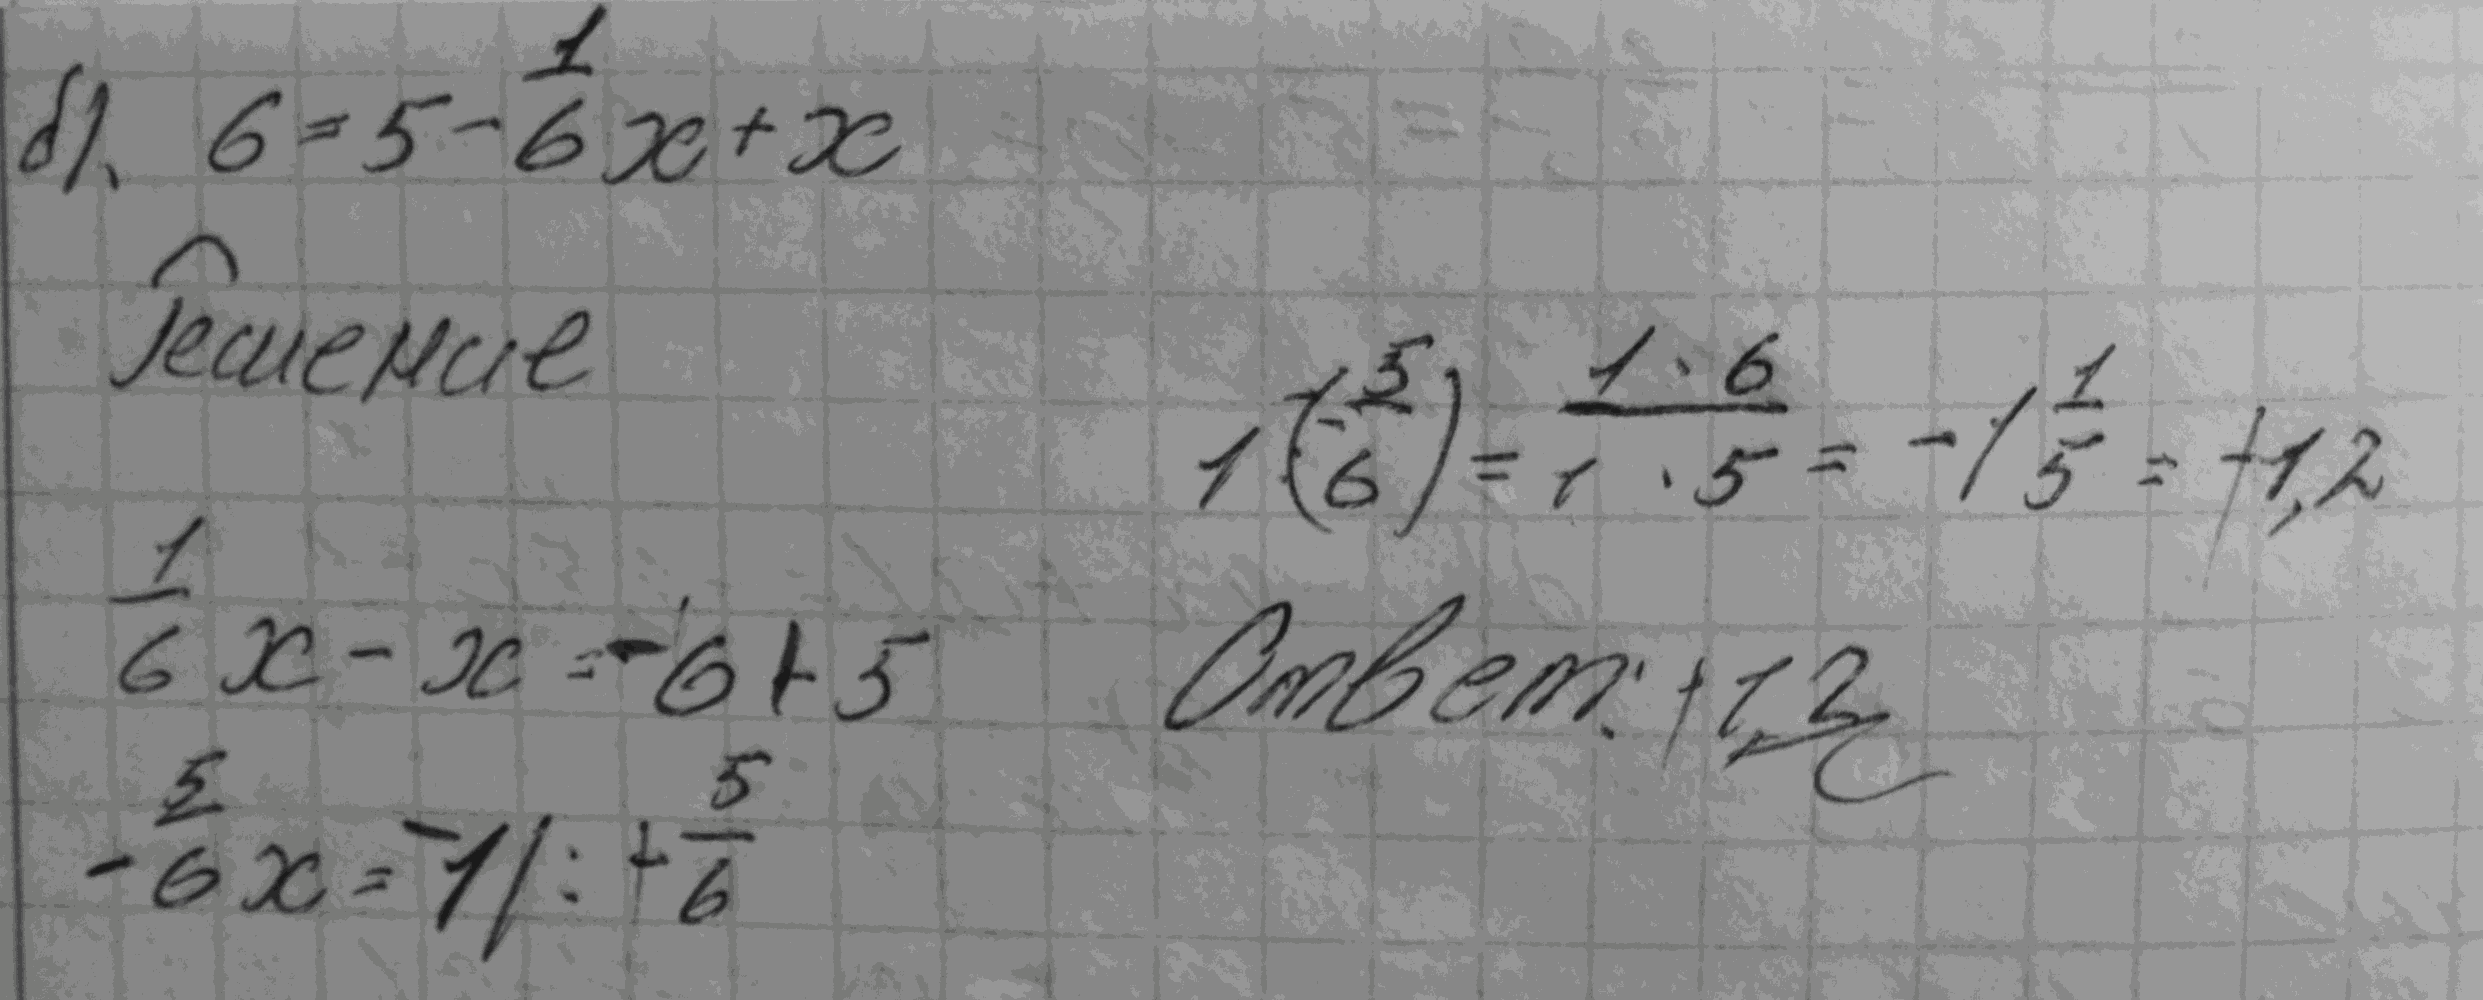 б). 6 = 5 - 1/6 x + x
Решение
1/6 x - x = -6 + 5
-5/6 x = -1 | : + 5/6
1 (- 5/6) = 1 · 6 / 1 · 5 = -1 1/5 = +1,2
Ответ: +1,2